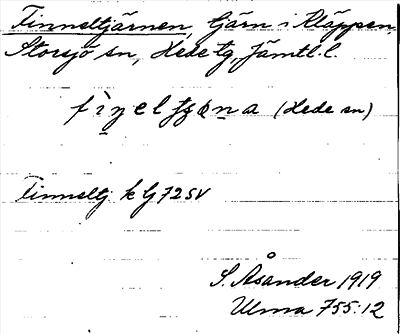 Finneltjärnen, tjärn i Kläppen,
Storsjö sn, Hede tg, Jämtl. l.
(Hede sn)
Finneltj k G 72 SV
S. Åsander 1919
Ulma 755:12